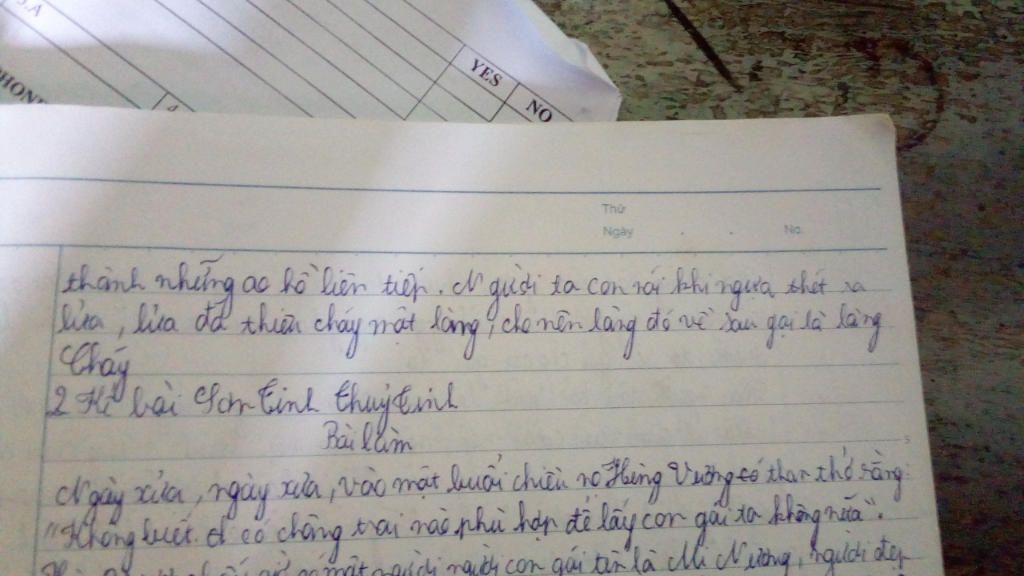 YES
NO
Thứ
Ngày . . No.
thành những ao hồ liên tiếp. Người ta con nói khi ngựa thét ra
lửa, lửa đã thiêu cháy một làng, cho nên làng đó về sau gọi là làng
Cháy
2 Kể bài Sơn Tinh Thuỷ Tinh
Bài làm
Ngày xửa, ngày xửa, vào một buổi chiều nọ Hùng Vương có than thở rằng:
"Không biết có chàng trai nào phù hợp để lấy con gái ta không nữa".
có một người người con gái tên là Mi Nương, người đẹp